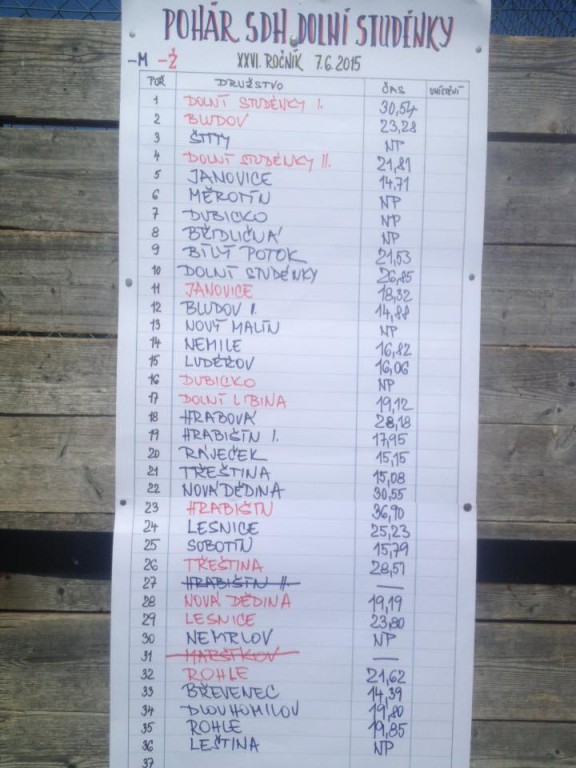 POHÁR SDH DOLNÍ STUDÉNKY
-M -Ž XXVI. ROČNÍK 7.6.2015
POŘ. DRUŽSTVO ČAS UMÍSTĚNÍ
1 DOLNÍ STUDÉNKY I. 30,54
2 BLUDOV 23,28
3 ŠTÍTY NP
4 DOLNÍ STUDÉNKY II. 21,81
5 JANOVICE 14,71
6 MĚROTÍN NP
7 DUBICKO NP
8 BŘIDLIČNÁ NP
9 BÍLÝ POTOK 21,53
10 DOLNÍ STUDÉNKY 26,85
11 JANOVICE 18,32
12 BLUDOV I. 14,88
13 NOVÝ MALÍN NP
14 NEMILE 16,82
15 LUDÉŘOV 16,06
16 DUBICKO NP
17 DOLNÍ LIBINA 19,12
18 HRABOVÁ 28,18
19 HRABIŠÍN I. 17,95
20 RÁJEČEK 15,15
21 TŘEŠTINA 15,08
22 NOVÁ DĚDINA 30,55
23 HRABIŠÍN 36,70
24 LESNICE 25,23
25 SOBOTÍN 15,79
26 TŘEŠTINA 28,51
27 HRABIŠÍN II. —
28 NOVÁ DĚDINA 19,19
29 LESNICE 23,80
30 NEMRLOV NP
31 MARŠÍKOV —
32 ROHLE 21,62
33 BŘEVENEC 14,39
34 DLOUHOMILOV 19,80
35 ROHLE 19,85
36 LEŠTINA NP
37